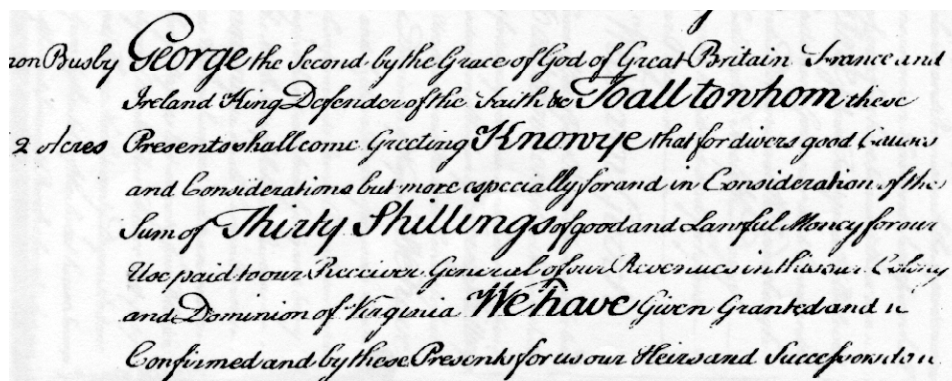 non Busby George the Second by the Grace of God of Great Britain France and
Ireland King Defender of the Faith &c To all to whom these
2 Acres Presents shall come Greeting Know ye that for divers good Causes
and Considerations but more especially for and in Consideration of the
Sum of Thirty Shillings of good and Lawful Money for our
Use paid to our Receiver General of our Revenues in this our Colony
and Dominion of Virginia We have Given Granted and
Confirmed and by these Presents for us our Heirs and Successors do